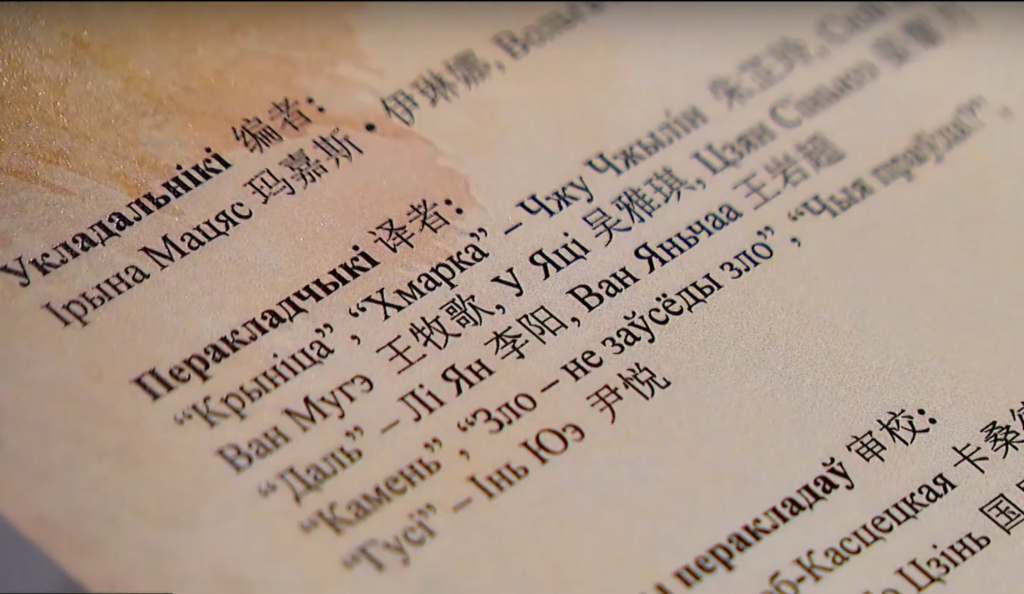 Укладальнікі 编者:
Ірына Мацяс 玛嘉斯·伊琳娜, Вольга
Перакладчыкі 译者:
“Крыніца”, “Хмарка” – Чжу Чжылін 朱芷玲,
Ван Мугэ 王牧歌, У Яці 吴雅琪, Цзян Сяньюэ
“Даль” – Лі Ян 李阳, Ван Яньчаа 王岩超
“Камень”, “Зло – не заўсёды зло”, “Чыя праўда?”,
“Гусі” – Інь Юэ 尹悦
перакладаў 审校:
Касцецкая 卡桑
Цзінь 国